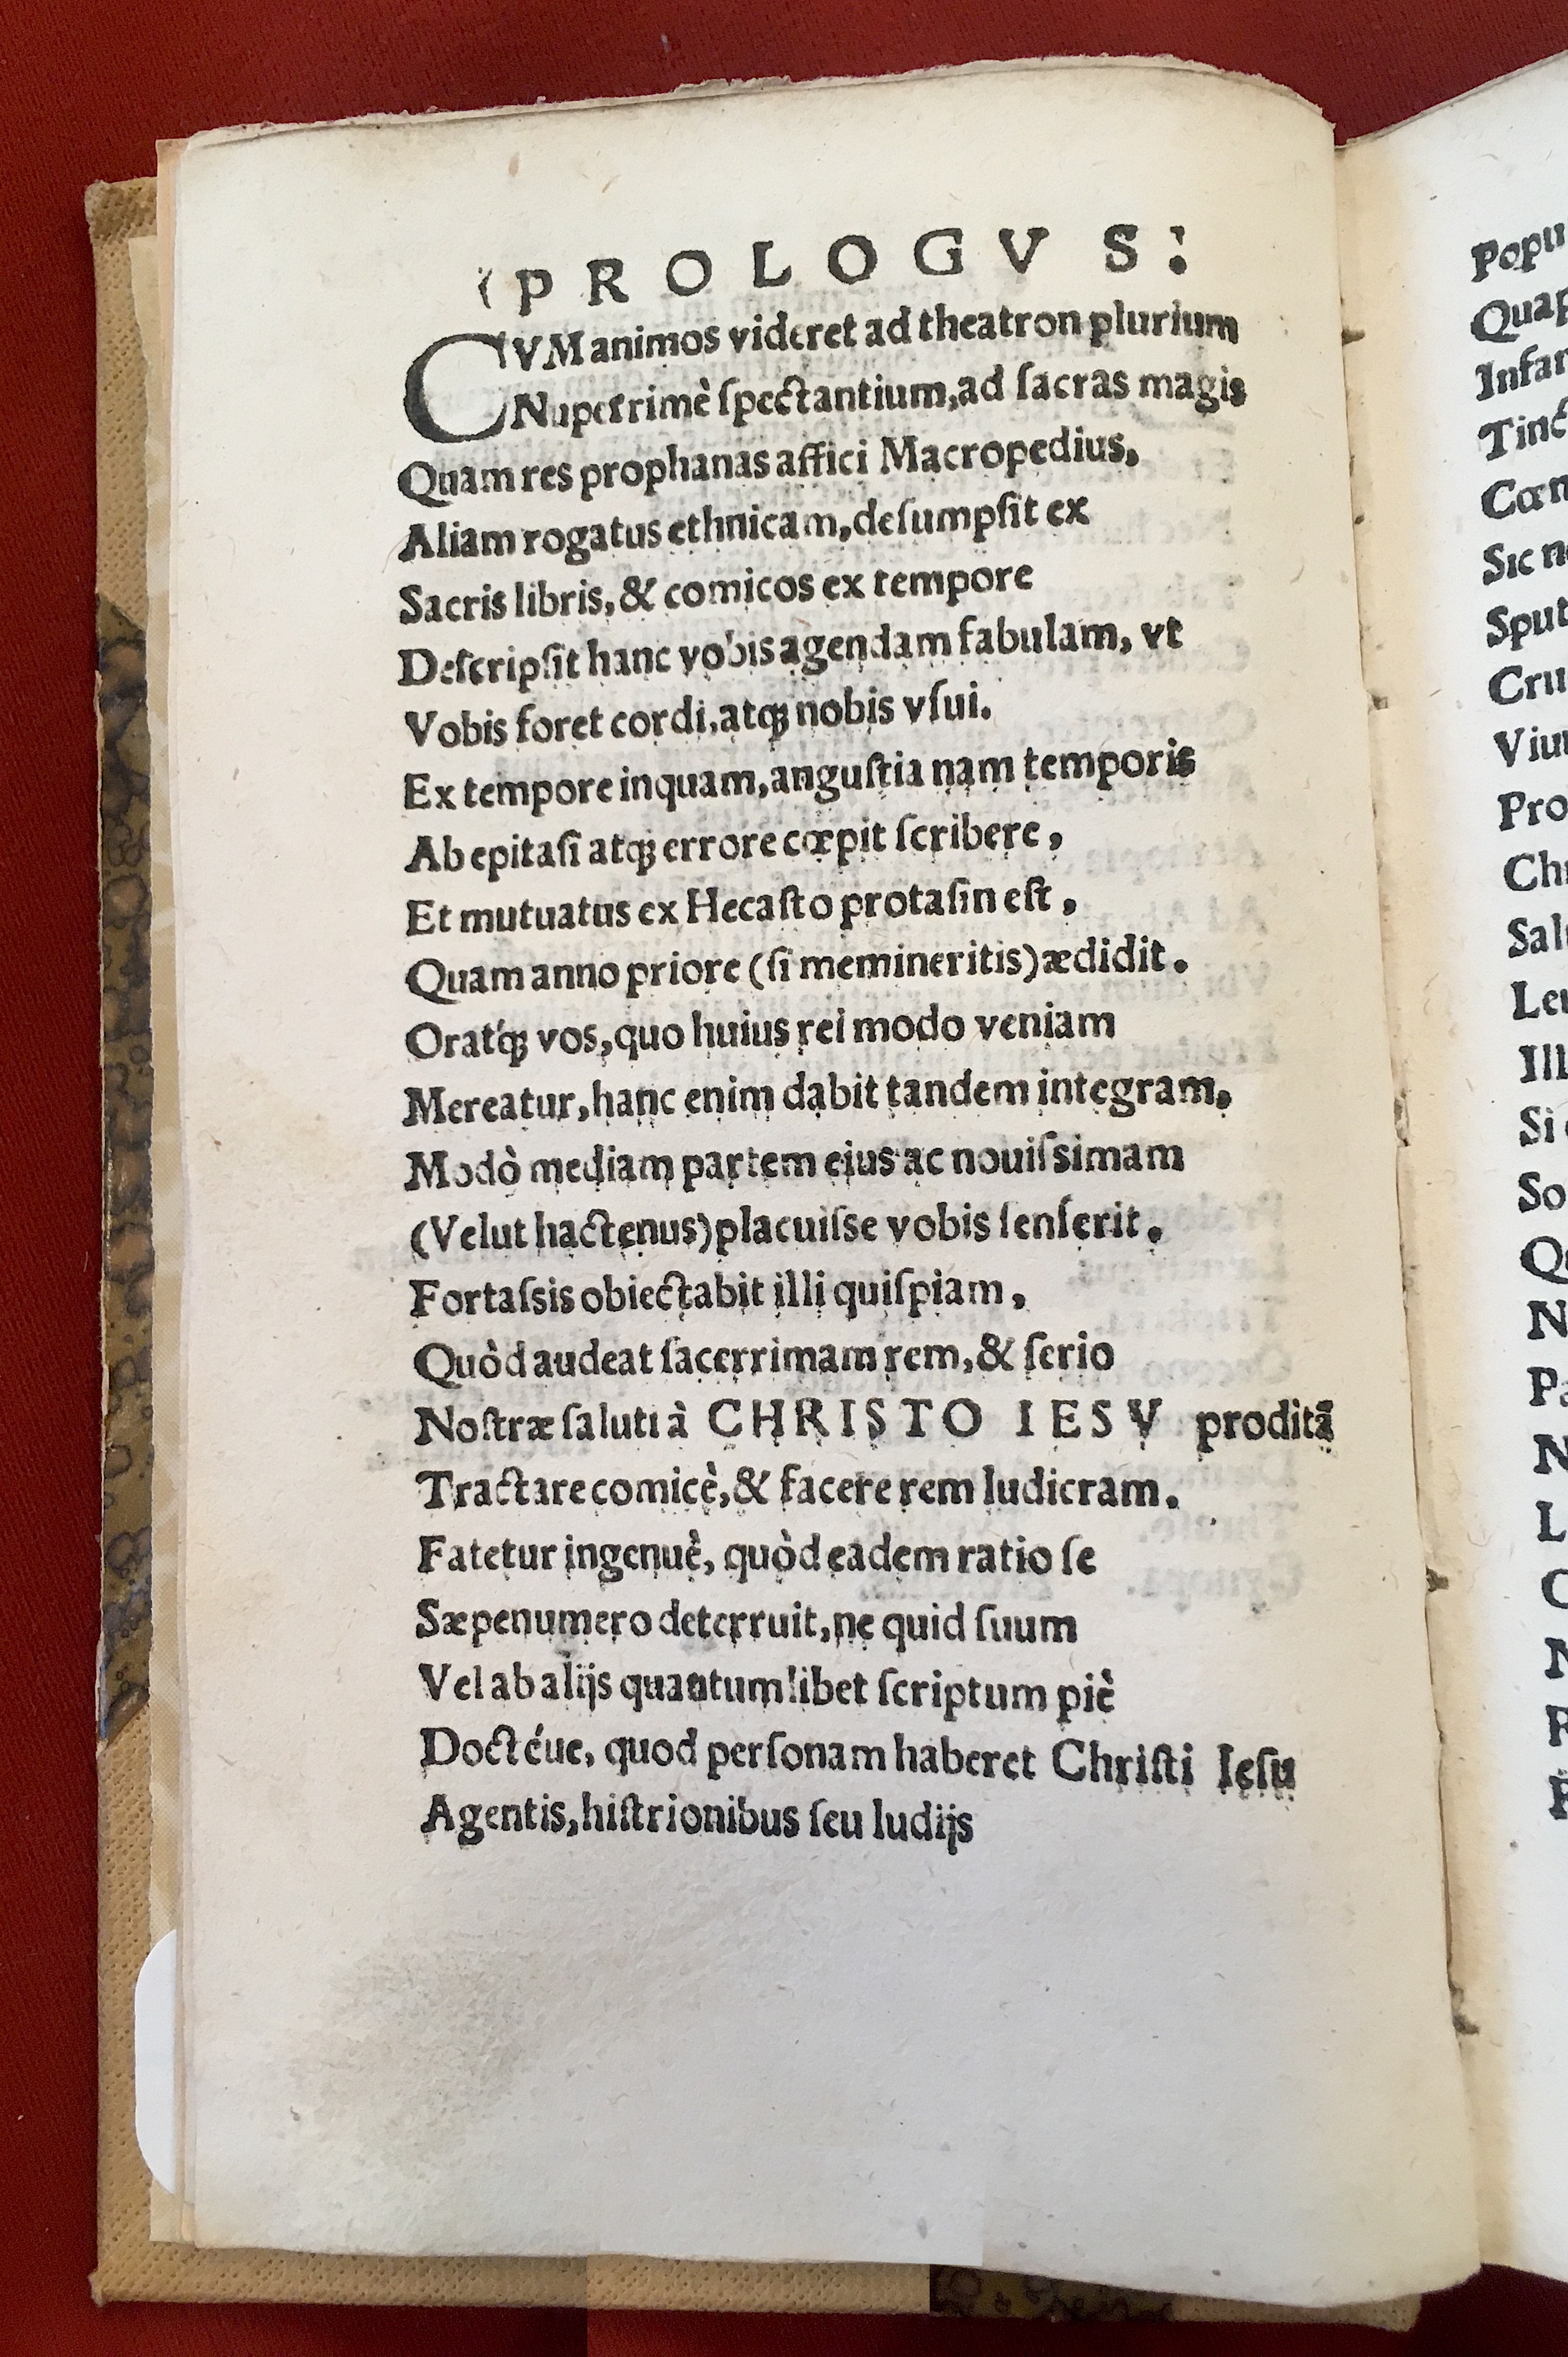 PROLOGVS:
CVM animos videret ad theatron plurium
Nuperrimè ſpectantium, ad ſacras magis
Quam res prophanas affici Macropedius,
Aliam rogatus ethnicam, deſumpſit ex
Sacris libris, & comicos ex tempore
Deſcripſit hanc vobis agendam fabulam, vt
Vobis foret cordi, atq; nobis vſui.
Ex tempore inquam, anguſtia nam temporis
Ab epitaſi atq; errore cœpit ſcribere,
Et mutuatus ex Hecaſto protaſin eſt,
Quam anno priore (ſi memineritis) ædidit.
Orat'q; vos, quo huius rei modo veniam
Mereatur, hanc enim dabit tandem integram,
Modò mediam partem eius ac nouiſsimam
(Velut hactenus) placuiſse vobis ſenſerit.
Fortaſsis obiectabit illi quiſpiam,
Quòd audeat ſacerrimam rem, & ſerio
Noſtræ ſaluti à CHRISTO IESV proditā
Tractare comicè, & facere rem ludicram.
Fatetur ingenuè, quòd eadem ratio ſe
Sæpenumero deterruit, ne quid ſuum
Vel ab alijs quantumlibet ſcriptum piè
Doctéue, quod perſonam haberet Chriſti Ieſu
Agentis, hiſtrionibus ſeu ludijs
Popu
Quap
Infan
Cœn
Sic n
Sput
Cru
Viu
Pro
Chr
Sal
Le
Ill
Si
So
Q
N
Pa
N
L